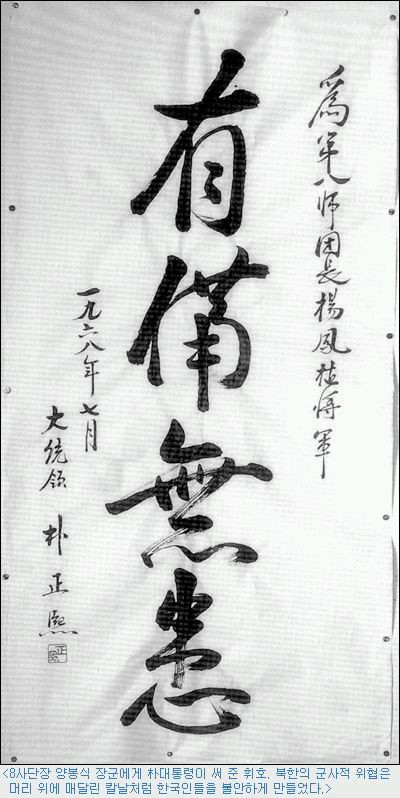 爲第八师团長楊鳳植将軍
有備無患
一九六八年七月
大統領 朴正熙
<8사단장 양봉식 장군에게 朴대통령이 써 준 휘호. 북한의 군사적 위협은
머리 위에 매달린 칼날처럼 한국인들을 불안하게 만들었다.>